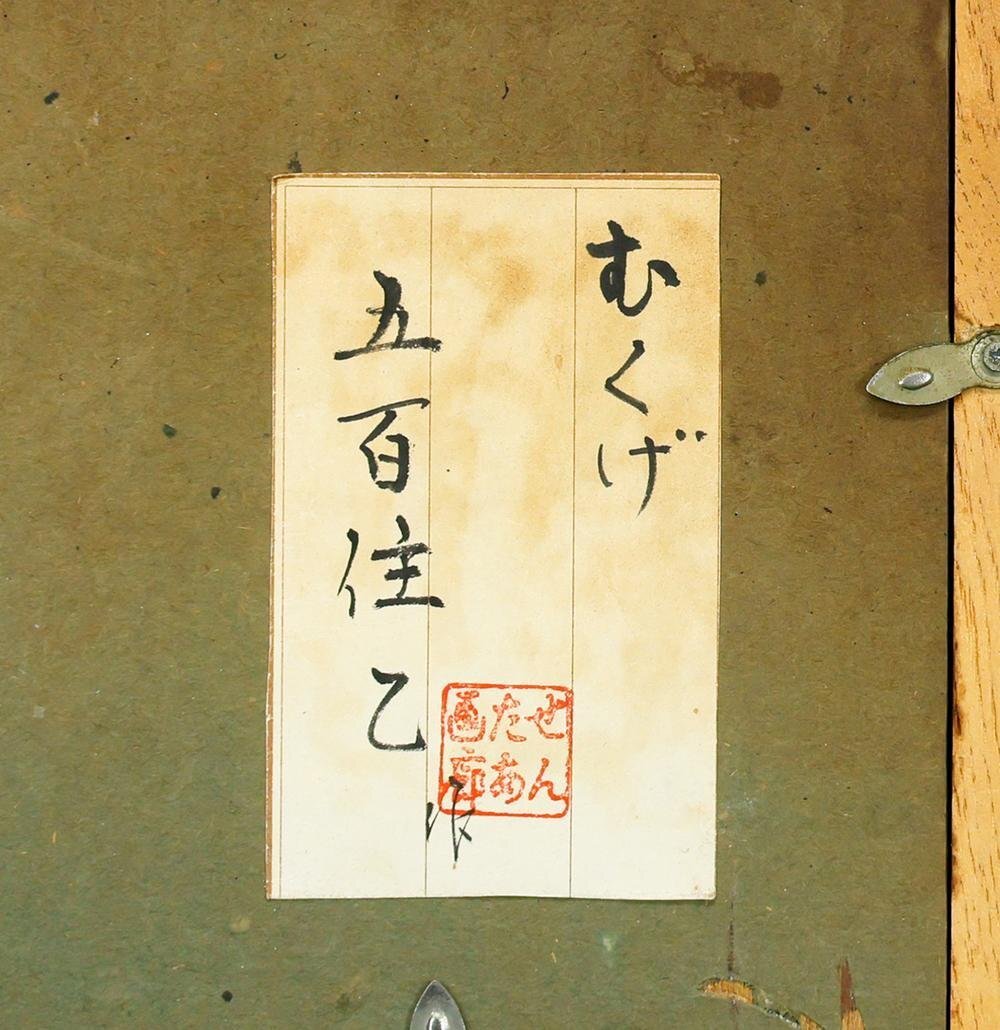 むくげ
五百住乙
作
せん
たあ
画廊